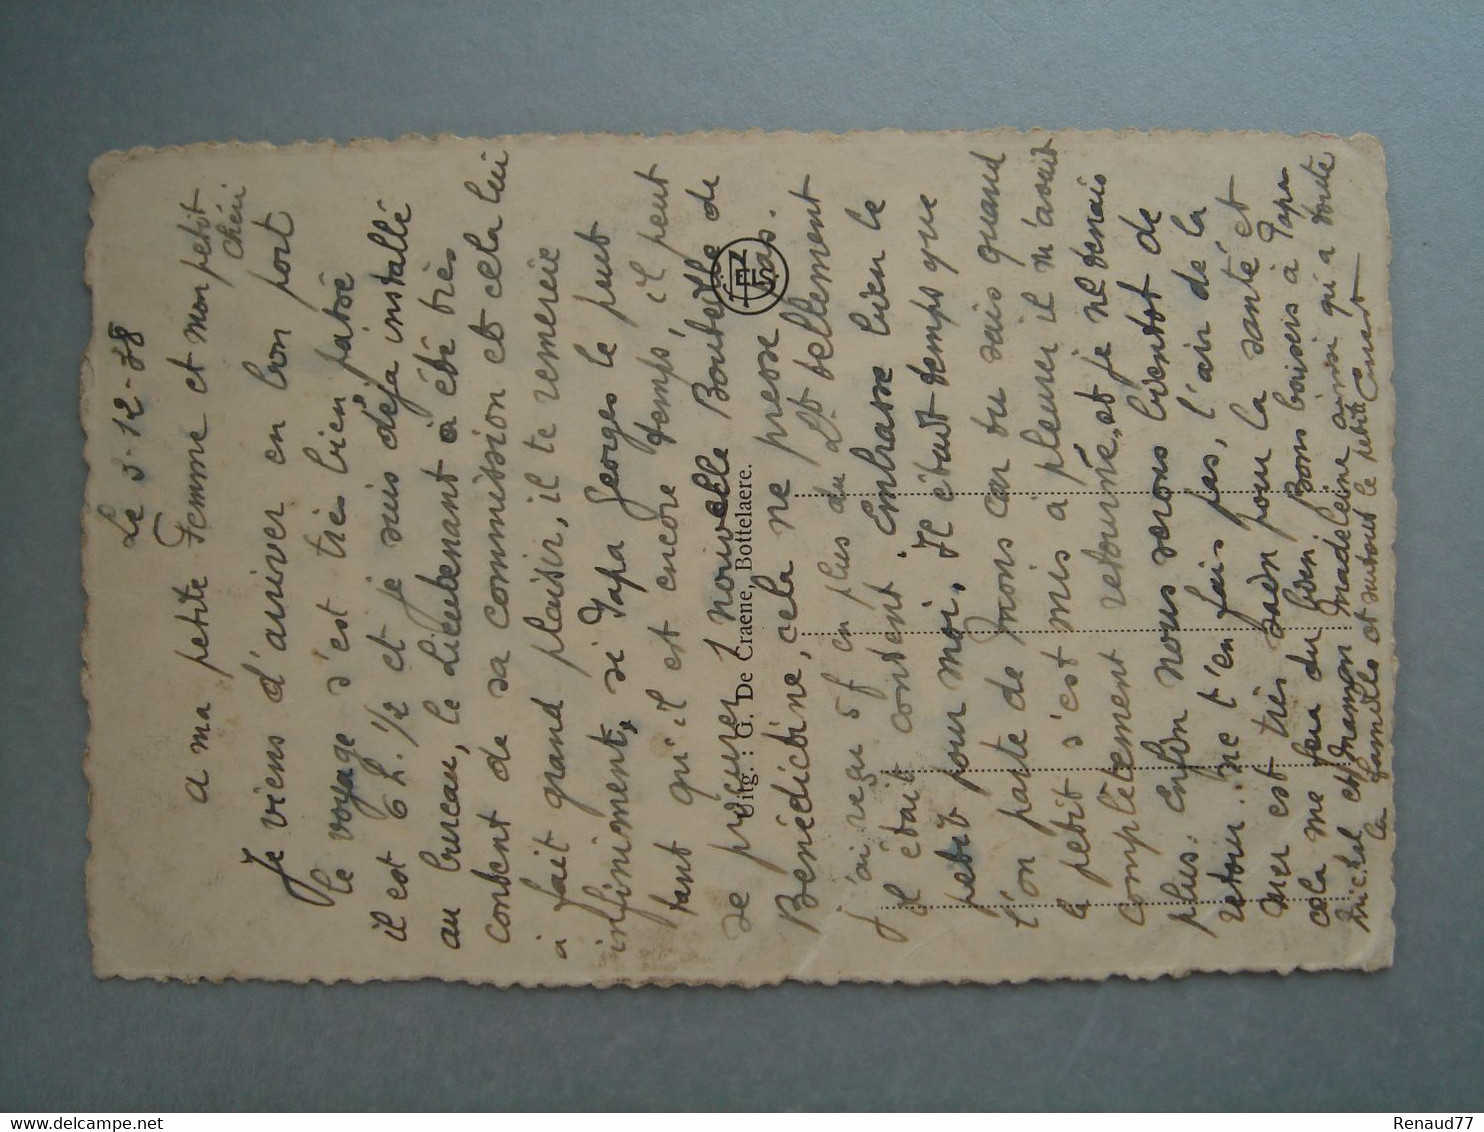 Le 3-12-38
a ma petite Femme et mon petit
chéri
Je viens d'arriver en bon port
le voyage s'est très bien passé
il est 6 h. 1/2 et je suis déjà installé
au bureau, le Lieutenant a été très
content de sa commission et cela lui
à fait grand plaisir, il te remercie
infiniment, si Papa Georges le peut
tant qu'il est encore temps, il peut
se procurer 1 nouvelle Bouteille de
Bénédictine, cela ne presse pas.
j'ai reçu 5f en plus du Lt tellement
il était content. Embrasse bien le
petit pour moi, Il était temps que
l'on parte de Mons car tu sais quand
le petit s'est mis à pleurer il m'avait
complètement retourné, et je ne tenais
plus. Enfin nous serons bientot de
retour. ne t'en fais pas, l'air de la
Mer est très sain pour la santé et
cela me fera du bien. Bons baisers à Papa
Michel et Maman Madeleine ainsi qu'a toute
la famille et surtout le petit
Uitg. : G. De Craene, Bottelaere.
Renaud77
delcampe.net